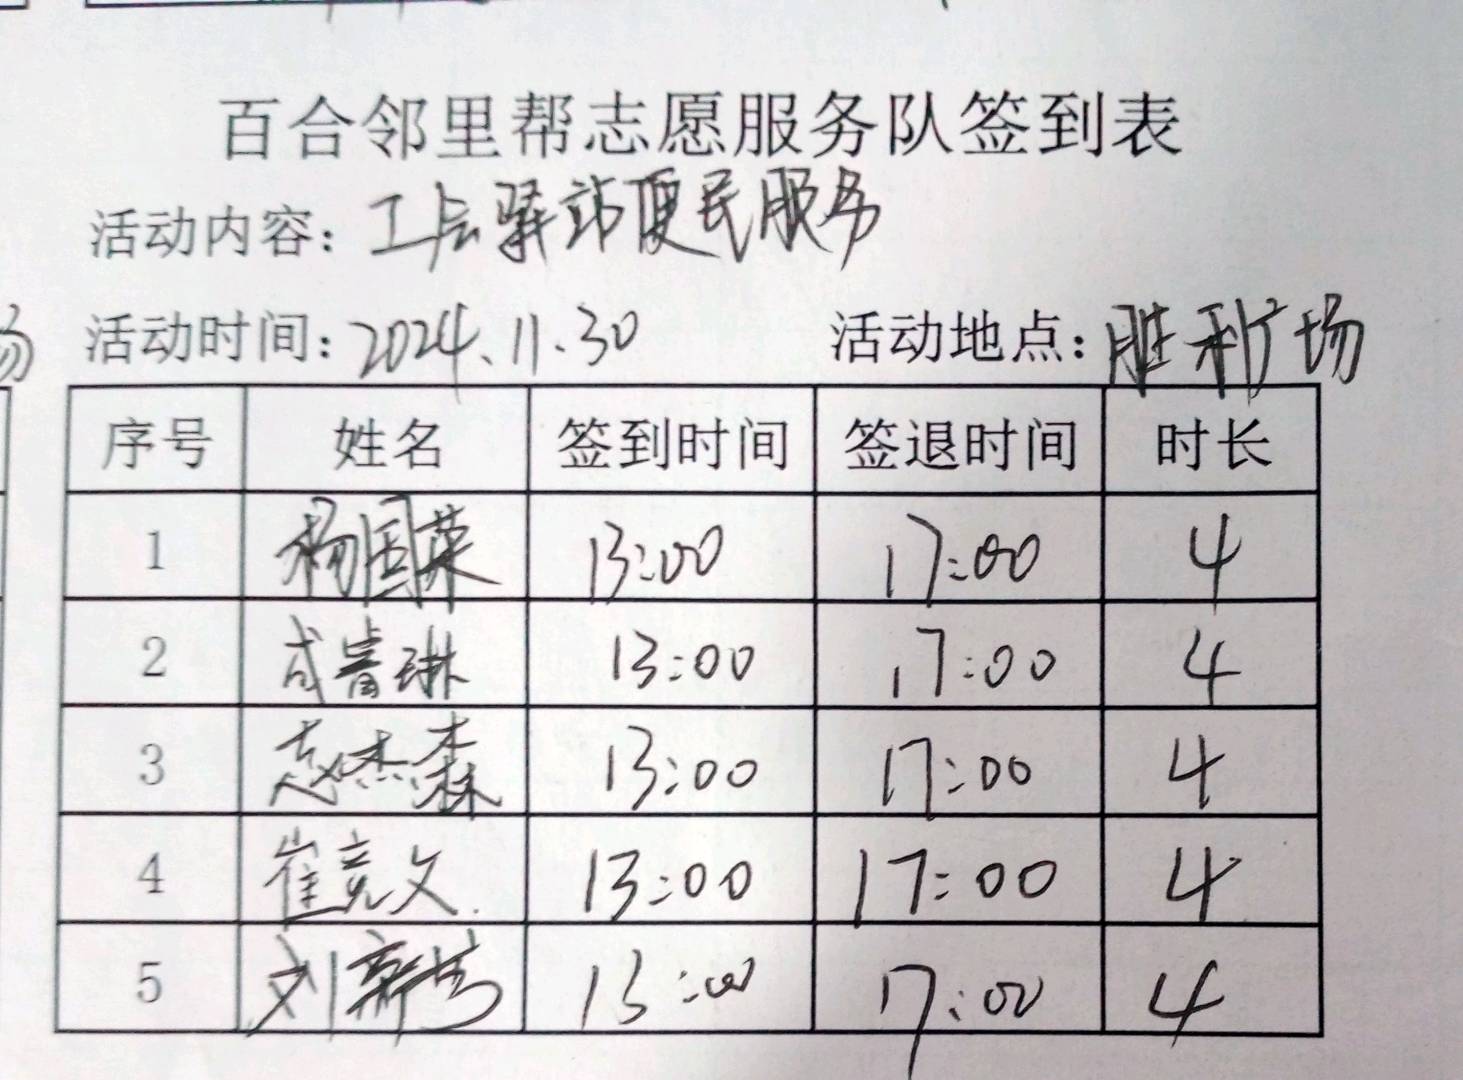 百合邻里帮志愿服务队签到表
活动内容：工会驿站便民服务
活动时间：2024.11.30 活动地点：胜利广场
序号 姓名 签到时间 签退时间 时长
1 杨国荣 13:00 17:00 4
2 成睿琳 13:00 17:00 4
3 赵杰森 13:00 17:00 4
4 崔竞文 13:00 17:00 4
5 刘新芳 13:00 17:00 4
场